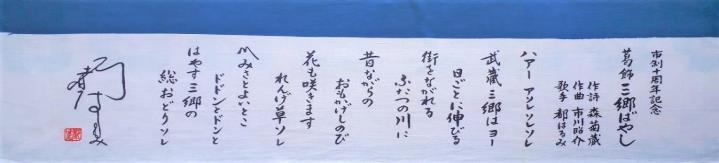 市制十周年記念
葛飾 三郷ばやし
作詩 森菊蔵
作曲 市川昭介
歌手 都はるみ
ハアー アソレソレソレ
武蔵三郷はヨー
日ごとに伸びる
街をながれる
ふたつの川に
昔ながらの
おもかげしのび
花も咲きます
れんげ草ソレ
〽みさとよいとこ
ドドンとドンと
はやす三郷の
総おどりソレ